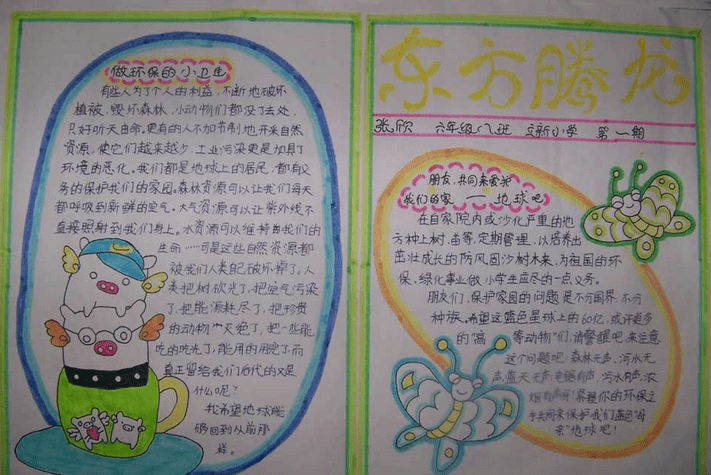 做环保的小卫生
有些人为了个人的利益，不断地破坏
植被，毁坏森林，小动物们都没了去处，
只好听天由命。更有的人不加节制地开来自然
资源，使它们越来越少。工业污染更是加具了
环境的恶化。我们都是地球上的居民，都有义
务的保护我们的家园。森林资源可以让我们每天
都呼吸到新鲜的空气。大气资源可以让紫外线不
直接照射到我们身上。水资源可以维持着我们的
生命……可是这些自然资源都
被我们人类自己破坏掉了。人
类把树砍光了，把空气污染
了，把能源耗尽了，把珍贵
的动物灭绝了，把一些能
吃的吃光了，能用的用完了，而
真正留给我们后代的又是
什么呢？
我希望地球能
够回到从前那
样。
东方腾龙
张欣 六年级八班 立新小学 第一期
朋友，共同来爱护
我们的家——地球吧
在自家院内或沙化严重的地
方种上树、苗等，定期管理，以培养出
茁壮成长的防风固沙树木来，为祖国的环
保、绿化事业做小学生应尽的一点义务。
朋友们，保护家园的问题是不分国界，不分
种族。希望这蓝色星球上的60亿，或许更多
的“高等动物”们，请警醒吧，来注意
这个问题吧：森林无声，河水无
声，蓝天无声；电锯有声，污水有声，浓
烟有声啊！紧握你的环保之
手共同来保护我们蓝色“母
亲”地球吧！